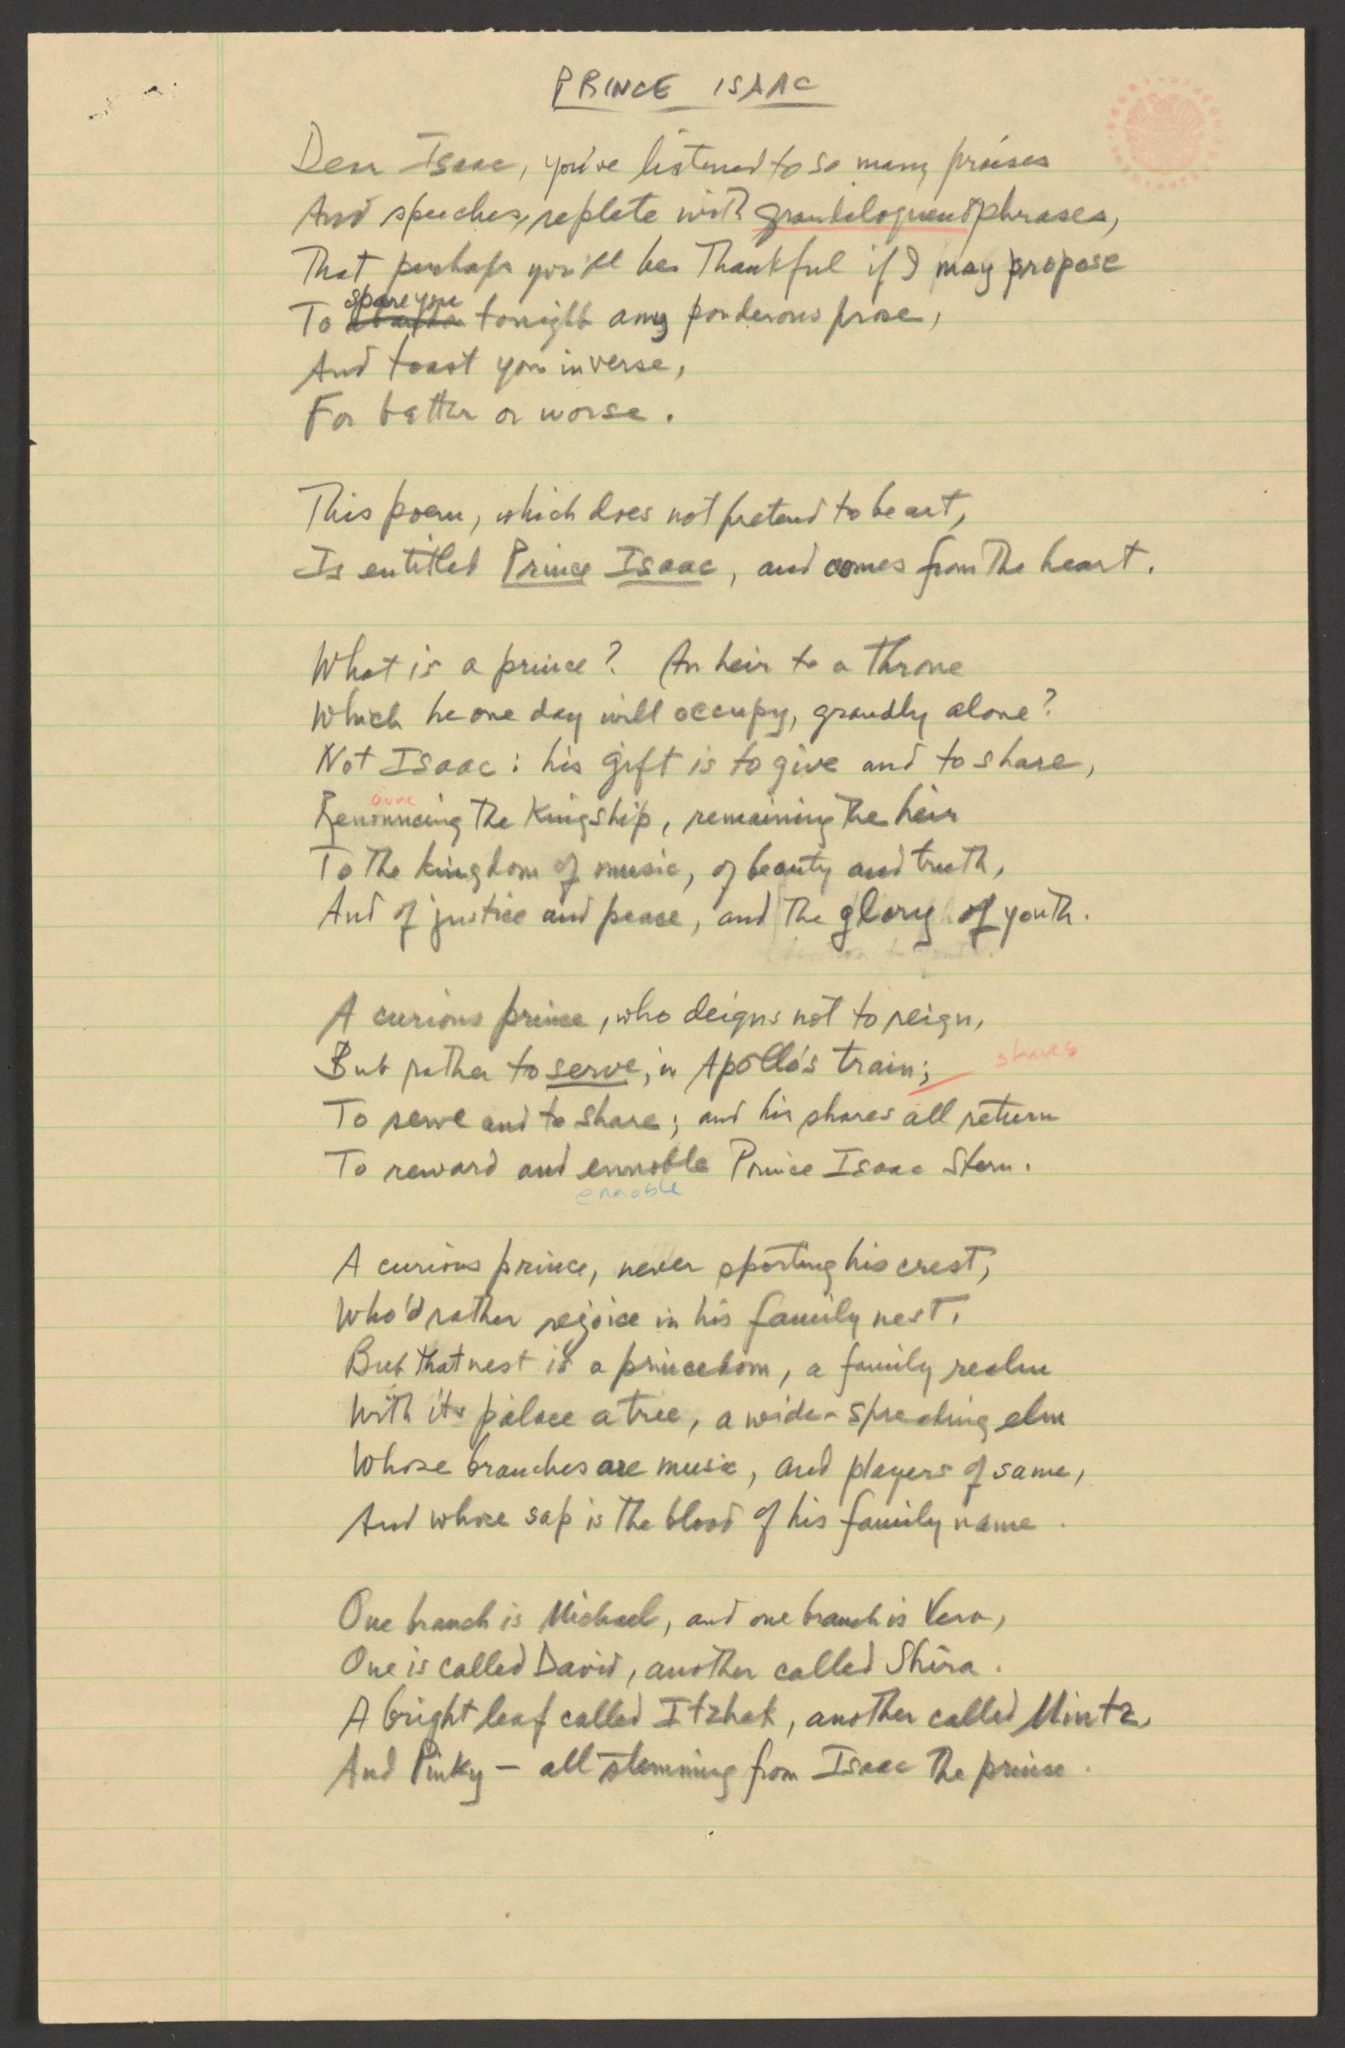 PRINCE ISAAC
Dear Isaac, you've listened to so many praises
And speeches, replete with grandiloquent phrases,
That perhaps you'll be thankful if I may propose
spare you
To tonight any ponderous prose,
And toast you in verse,
For better or worse.
This poem, which does not pretend to be art,
Is entitled Prince Isaac, and comes from the heart.
What is a prince? An heir to a throne
Which he one day will occupy, grandly alone?
Not Isaac: his gift is to give and to share,
ounc
Renouncing the Kingship, remaining the heir
To the kingdom of music, of beauty and truth,
And of justice and peace, and the glory of youth.
A curious prince, who deigns not to reign,
But rather to serve, in Apollo's train; shares
To serve and to share; and his shares all return
To reward and ennoble Prince Isaac Stern.
ennoble
A curious prince, never sporting his crest,
Who'd rather rejoice in his family nest.
But that nest is a princedom, a family realm
With its palace a tree, a wide-spreading elm
Whose branches are music, and players of same,
And whose sap is the blood of his family name.
One branch is Michael, and one branch is Vera,
One is called David, another called Shira.
A bright leaf called Itzhak, another called Mintz,
And Pinky — all stemming from Isaac the prince.